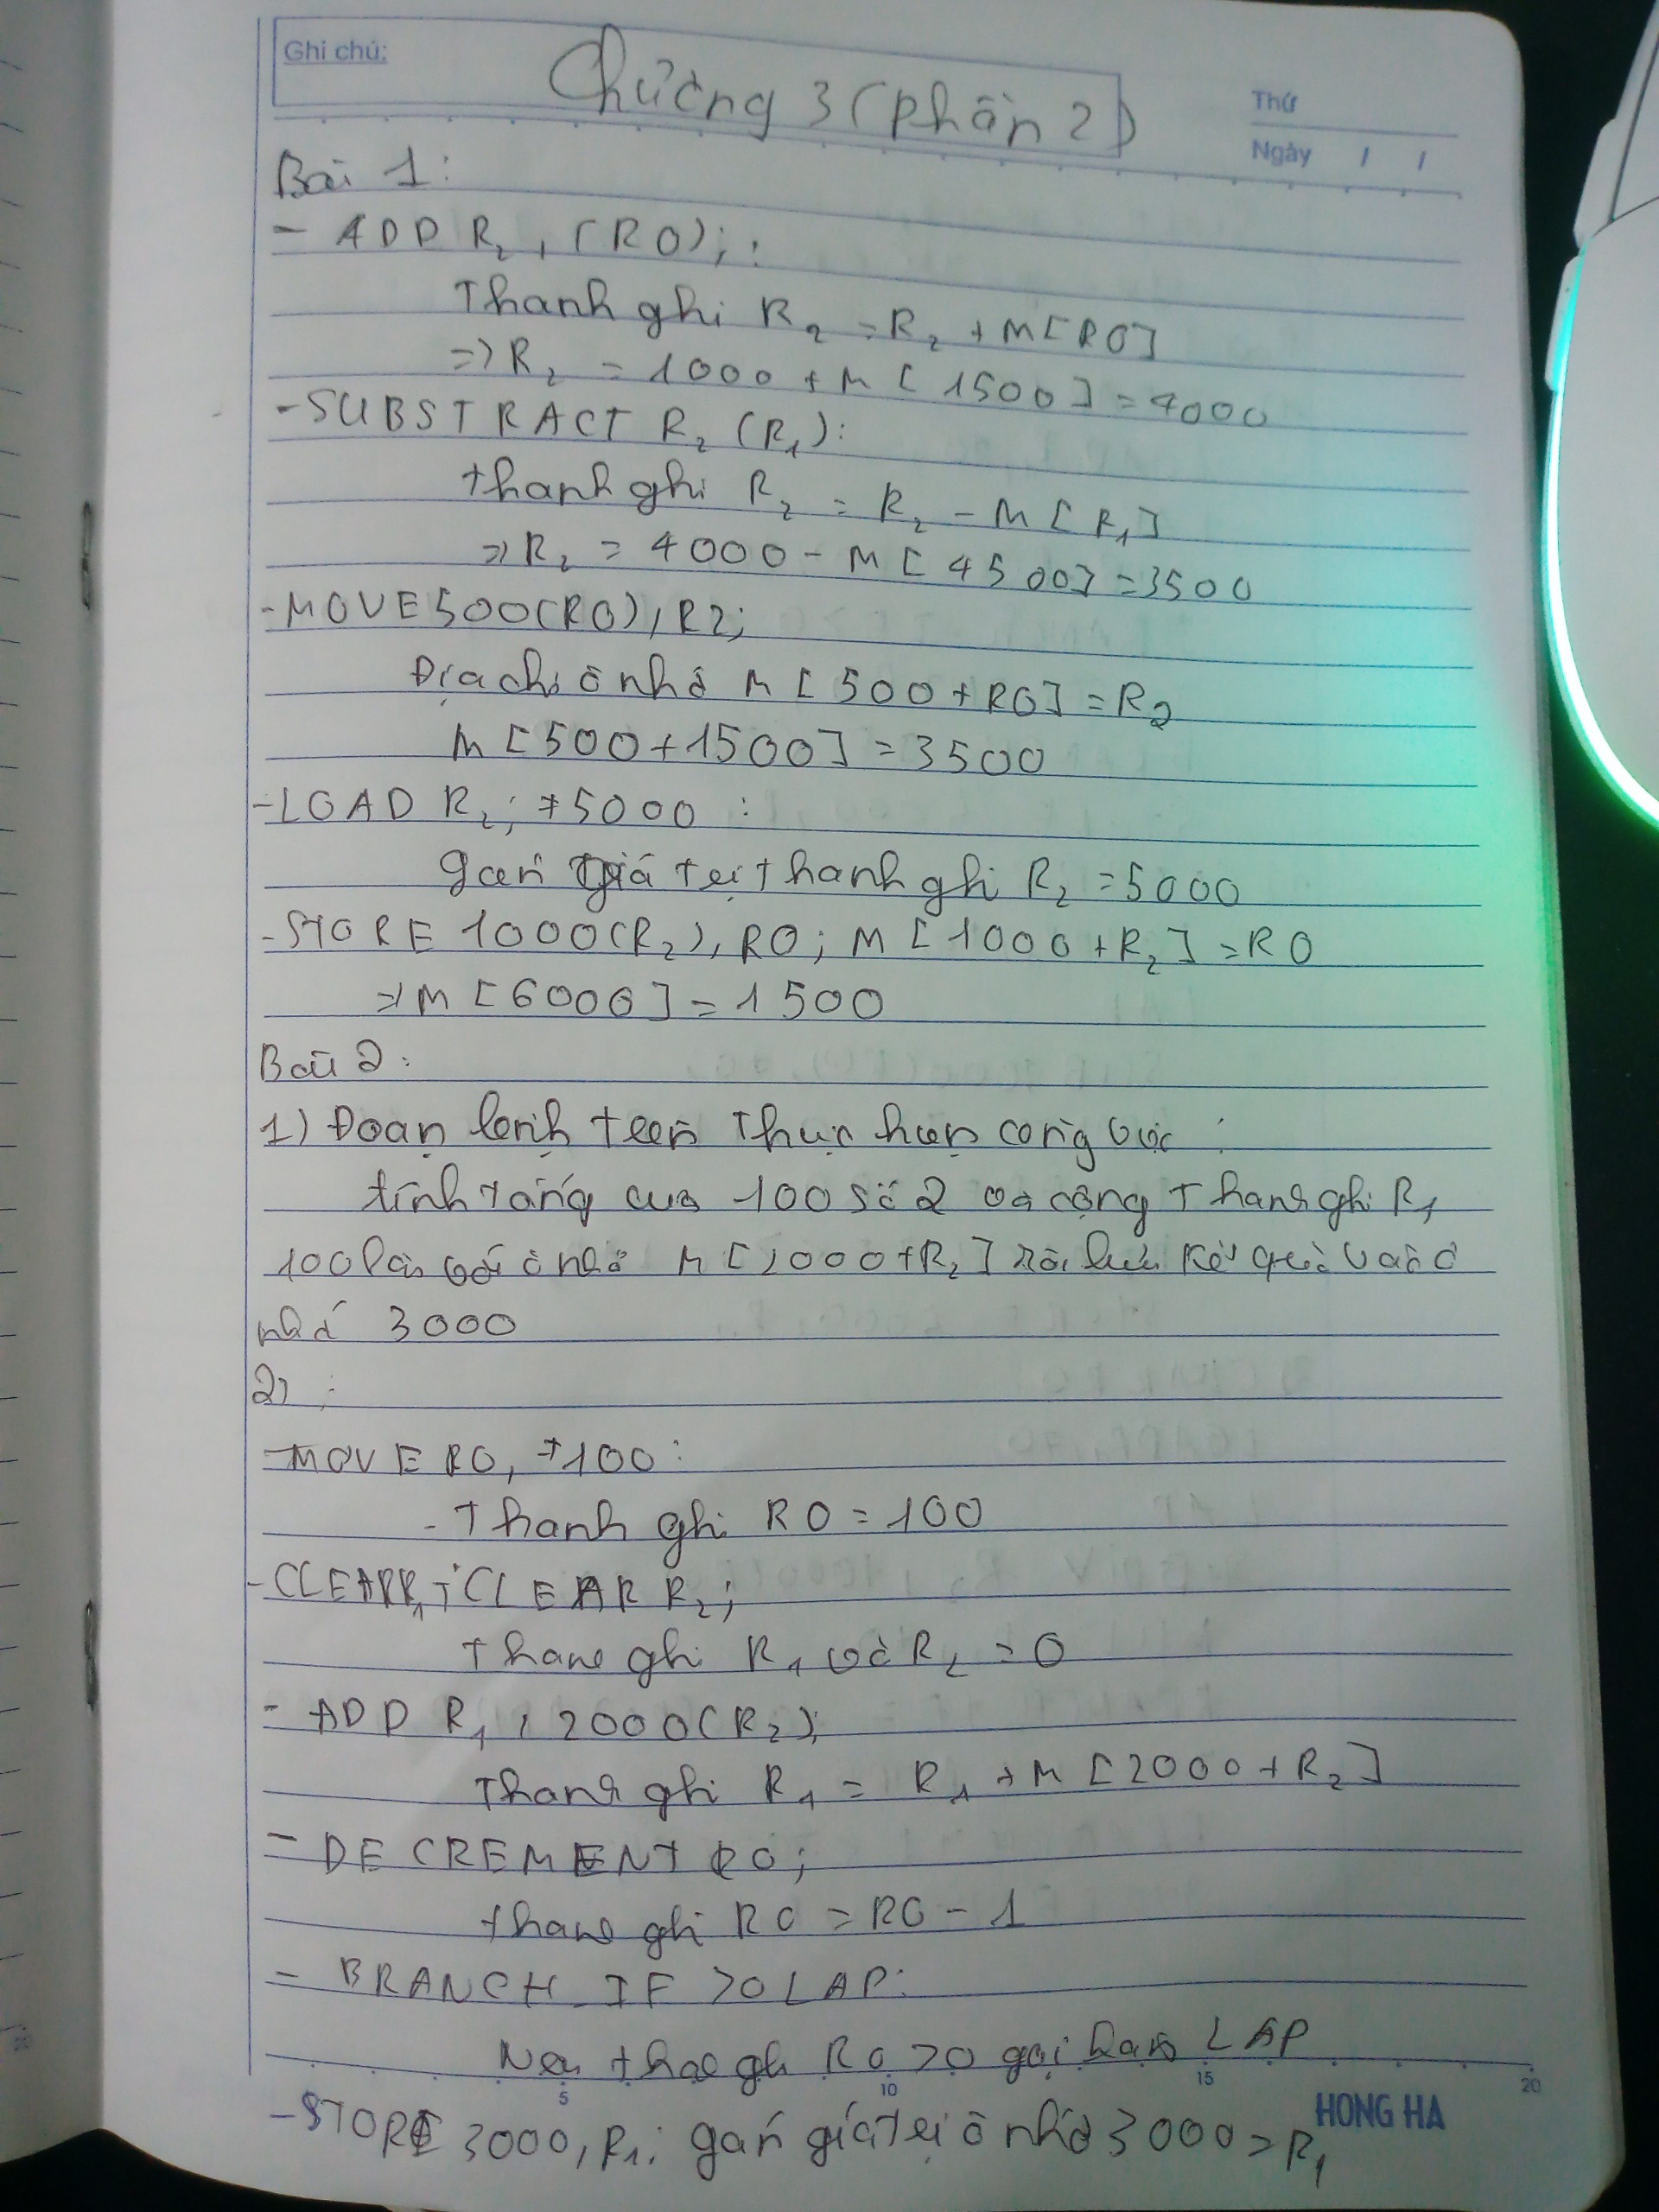 Ghi chú:
Chương 3 (phần 2)
Thứ
Ngày / /
Bài 1:
- ADD R2, (R0); :
Thanh ghi R2 = R2 + M[R0]
=> R2 = 1000 + M[1500] = 4000
- SUBSTRACT R2 (R1):
thanh ghi R2 = R2 - M[R1]
=> R2 = 4000 - M[4500] = 3500
- MOVE 500(R0), R2;
Địa chỉ ô nhớ M[500+R0] = R2
M[500+1500] = 3500
- LOAD R2; #5000 :
gán giá trị thanh ghi R2 = 5000
- STORE 1000(R2), R0; M[1000+R2] = R0
=> M[6000] = 1500
Bài 2:
1) Đoạn lệnh trên thực hiện công việc :
tính tổng của 100 số 2 và cộng thanh ghi R1
100 lần với ô nhớ M[2000+R2] rồi lưu kết quả vào ô
nhớ 3000
2) :
- MOVE R0, #100 :
- Thanh ghi R0 = 100
- CLEAR R1; CLEAR R2;
Thanh ghi R1 và R2 = 0
- ADD R1, 2000(R2);
Thanh ghi R1 = R1 + M[2000+R2]
- DECREMENT R0;
thanh ghi R0 = R0 - 1
- BRANCH_IF >0 LAP:
Nếu thanh ghi R0 >0 gọi hàm LAP
5 10 15 20
HONG HA
- STORE 3000, R1: gán giá trị ô nhớ 3000 = R1